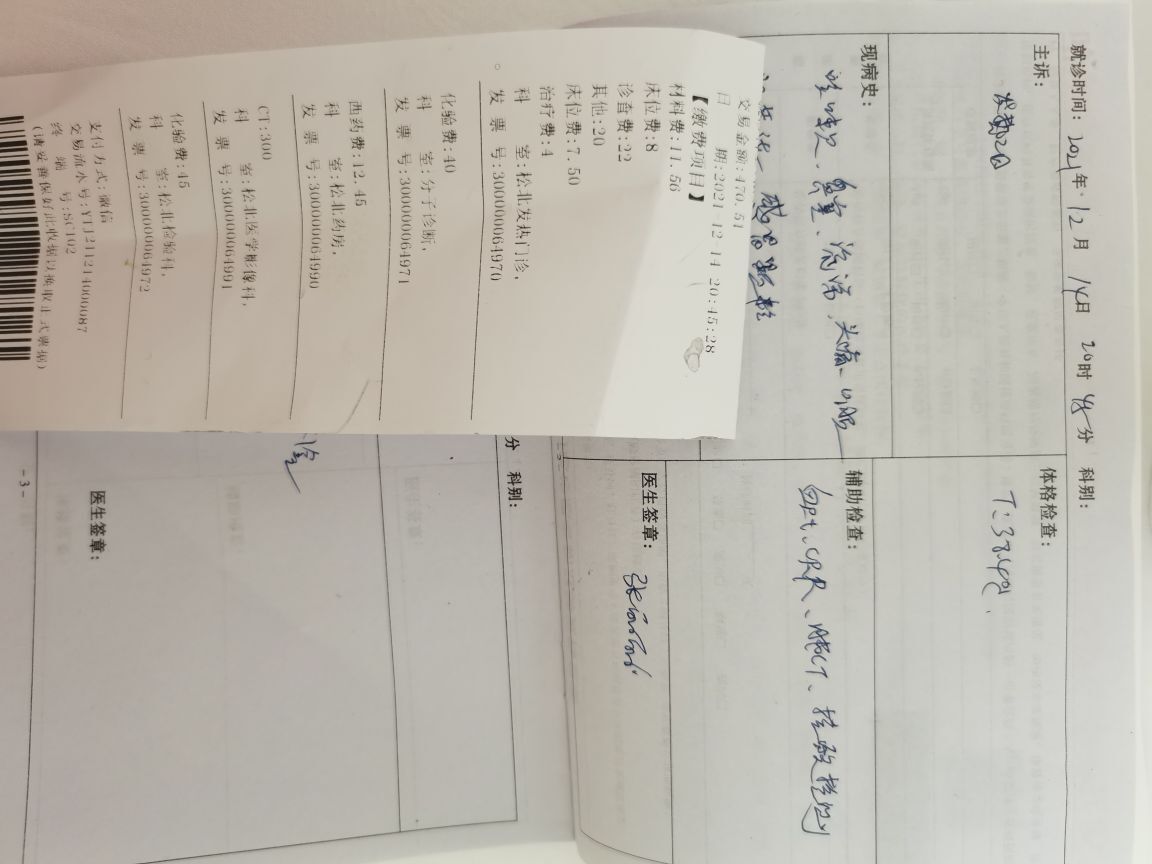 就诊时间：2021年12月14日20时45分 科别：
主诉：
发热2日
现病史：
头痛
体格检查：
T：38.4℃
辅助检查：
CT、核酸检测
医生签章：
交易金额:470.51
日 期:2021-12-14 20:45:28
【缴费项目】
材料费:11.56
床位费:8
诊查费:22
其他:20
床位费:7.50
治疗费:4
科 室:松北发热门诊,
发 票 号:300000064970
化验费:40
科 室:分子诊断,
发 票 号:300000064971
西药费:12.45
科 室:松北药房,
发 票 号:300000064990
CT:300
科 室:松北医学影像科,
发 票 号:300000064991
化验费:45
科 室:松北检验科,
发 票 号:300000064972
支付方式:微信
交易流水号:YTJ211214000087
终 端 号:SC102
(请妥善保存此收据以换取正式票据)
分 科别：
医生签章：
-3-